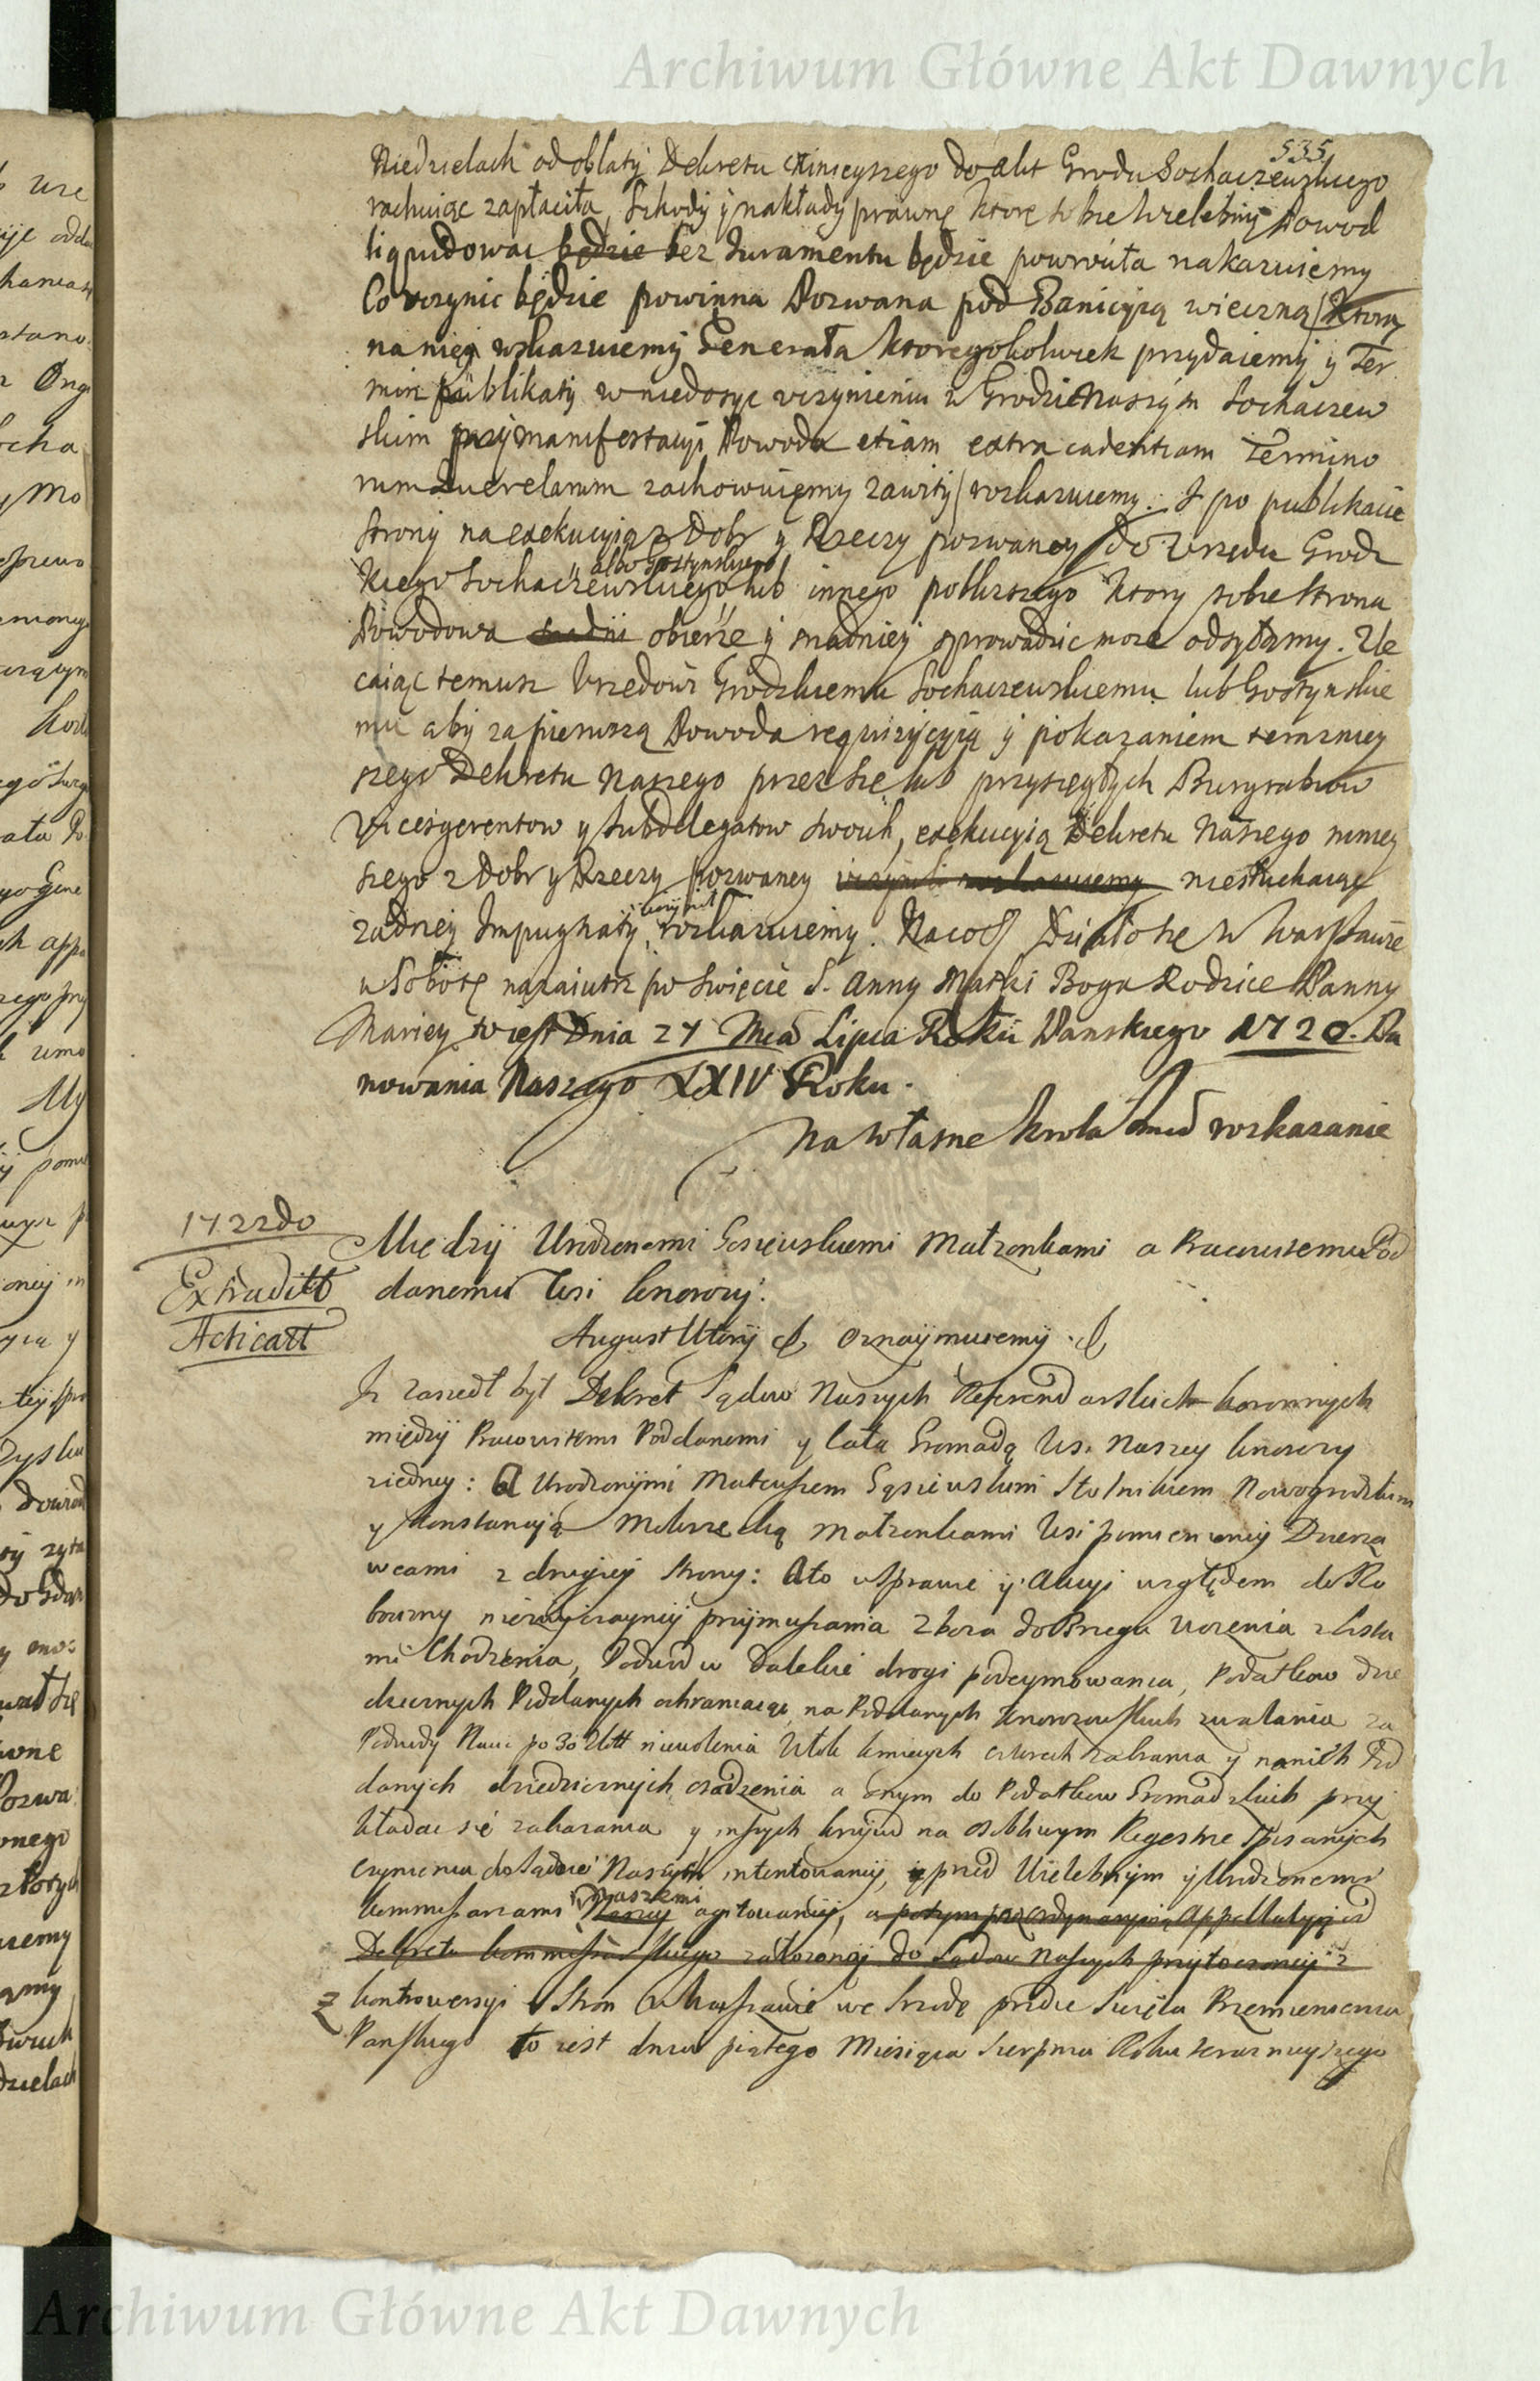 Archiwum Główne Akt Dawnych
535
Niedzielach od oblaty Dekretu ninieyszego do akt Grodu Sochaczewskiego
rachuiąc zapłaciła, Szkody y nakłady prawne ktore sobie Wielebny Powod
liquidować będzie bez Iuramentu będzie powrociła nakazuiemy
Co uczynic będzie powinna Pozwana pod Banicyią wieczną ktorą
na nię wskazuiemy Generała ktoregokolwiek przydaiemy y Ter
min publikaty w niedosyc uczynieniu w Grodzie Naszym Sochaczew
skim przy manifestacyi Powoda etiam extra cadentiam Termino
rum Querelarum zachowuięmy zawity rozkazuiemy. I po publikacie
Strony na exekucyią z Dobr y Rzeczy pozwaney do Urzędu Grodz
kiego Sochaczewskiego albo Gostynskiego lub innego poblizszego ktory sobie strona
Powodowa obierze y snadniey sprowadzic moze odsyłamy. Zle
caiąc temusz Urzedowi Grodzkiemu Sochaczewskiemu lub Gostynskie
mu aby za pierwszą Powoda requizycyią y pokazaniem terazniey
szego Dekretu Naszego przez się lub przysięgłych Burgrabiow
Vicesgerentow y Subdelegatow swoich, exekucyią Dekretu Naszego niniey
szego z Dobr y Rzeczy pozwaney uczynili rozkazuiemy niesłuchaiąc
zadney Impugnaty, uczynic rozkazuiemy. Na co Działo się w Warszawie
w Sobotę nazaiutrz po Swięcie S. Anny Matki Boga Rodzice Panny
Mariey to iest Dnia 27 Mca Lipca Roku Panskiego 1720. Pa
nowania Naszego XXIV Roku.
Na własne Krola Jmci rozkazanie
1722do
Extraditt
Acticatt
Między Urodzonemi Gąsiewskiemi Małzonkami a Pracowitemu Pod
danemu Wsi Knorozy.
August Wtory Oznaymuiemy
Iz zaszedł był Dekret Sądow Naszych Referendarskich koronnych
między Pracowitemi Poddanemi y całą Gromadą Wsi Naszey Knorozy
z iedney: A Urodzonymi Mateuszem Gąsiewskim Stolnikiem Nowogrodzkim
y Konstancyą Małzonkami Wsi pomienioney Dzierza
wcami z drugiey strony: A to w Sprawie y Akcyi względem do Ro
bocizny niezwyczayney przymuszania Zboza do Brzegu wozenia z Lista
mi Chodzenia, Podwod w dalekie drogi podeymowania, Podatkow dzie
dzicznych Poddanych ochraniaiąc, na Poddanych Knorozowskich zwalania za
Podwody po 30 Złłt niewolenia Włok kmiecych czterech zabrania y na nich Pod
danych dziedzicznych osadzenia a onym do Podatkow Gromadzkich przy
kładac się zakazania y inszych krzywd na osobliwym Regestrze spisanych
czynienia do Sądow Naszych intentowaney, y przed Wielebnym y Urodzonemi
kommissarzami Naszemi agitowaney, a potym przez ordynaryiną Appellatyą od
Dekretu kommissarskiego załozoney do Sądow Naszych przytoczoney z
Z kontrowersyi Stron w Warszawie we Srzodę przed Swięta Przemienienia
Panskiego to iest dnia piątego Miesiąca Sierpnia Roku teraznieyszego
Archiwum Główne Akt Dawnych